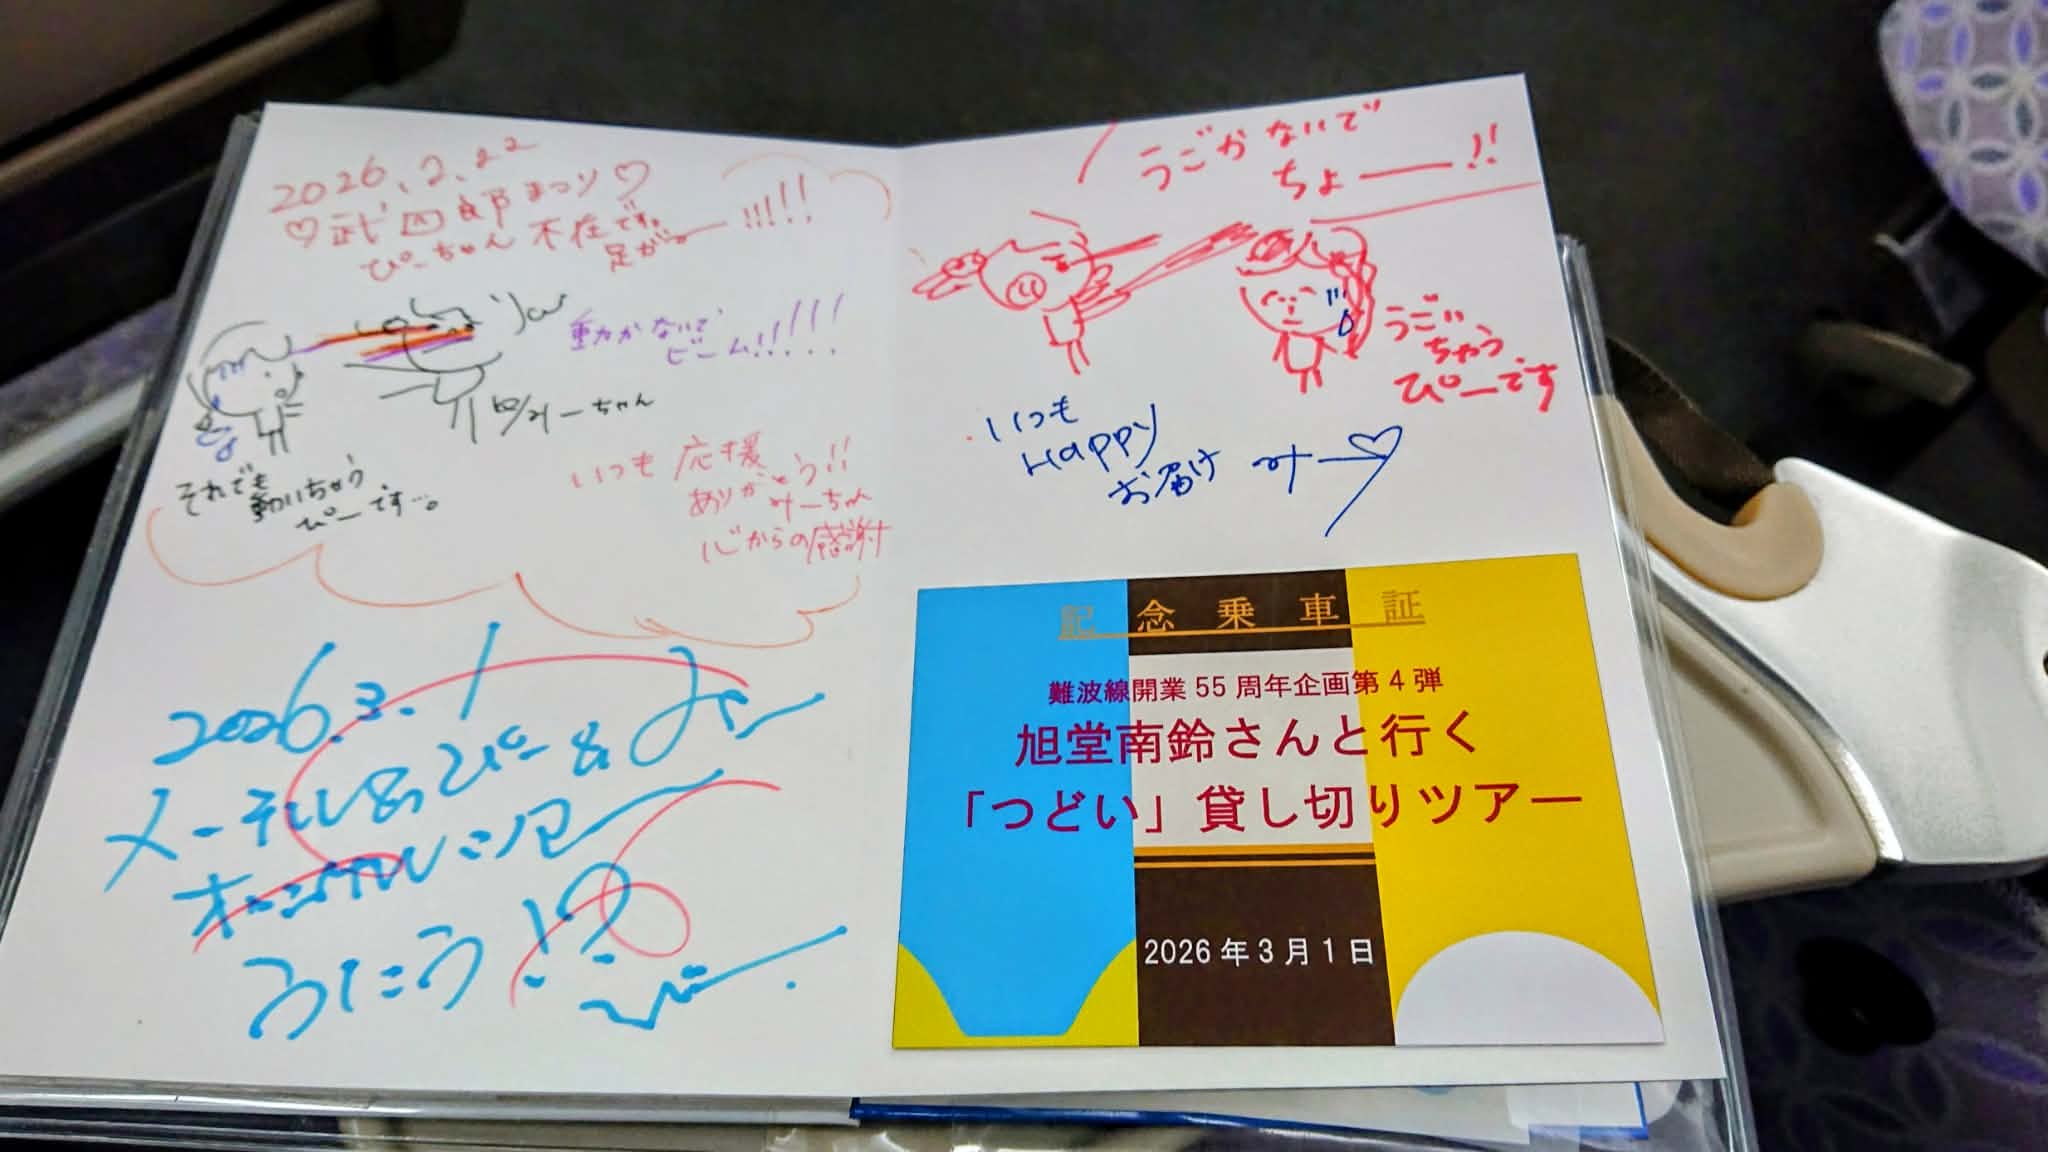 2026.2.22
♡武四郎まつり♡
ぴーちゃん不在です。
足がー!!!!!
動かないで
ビーム!!!!!
by みーちゃん
それでも
動いちゃう
ぴーです…。
いつも応援
ありがとう!!
みーちゃん
心からの感謝
2026.3.1
メーテル&ぴー&みー
オーシャンアロー
うたう!!
ぴー
うごかないで
ちょー!!
うごい
ちゃう
ぴーです
いつも
Happy
お届け みー♡
記念乗車証
難波線開業55周年企画第4弾
旭堂南鈴さんと行く
「つどい」貸し切りツアー
2026年3月1日